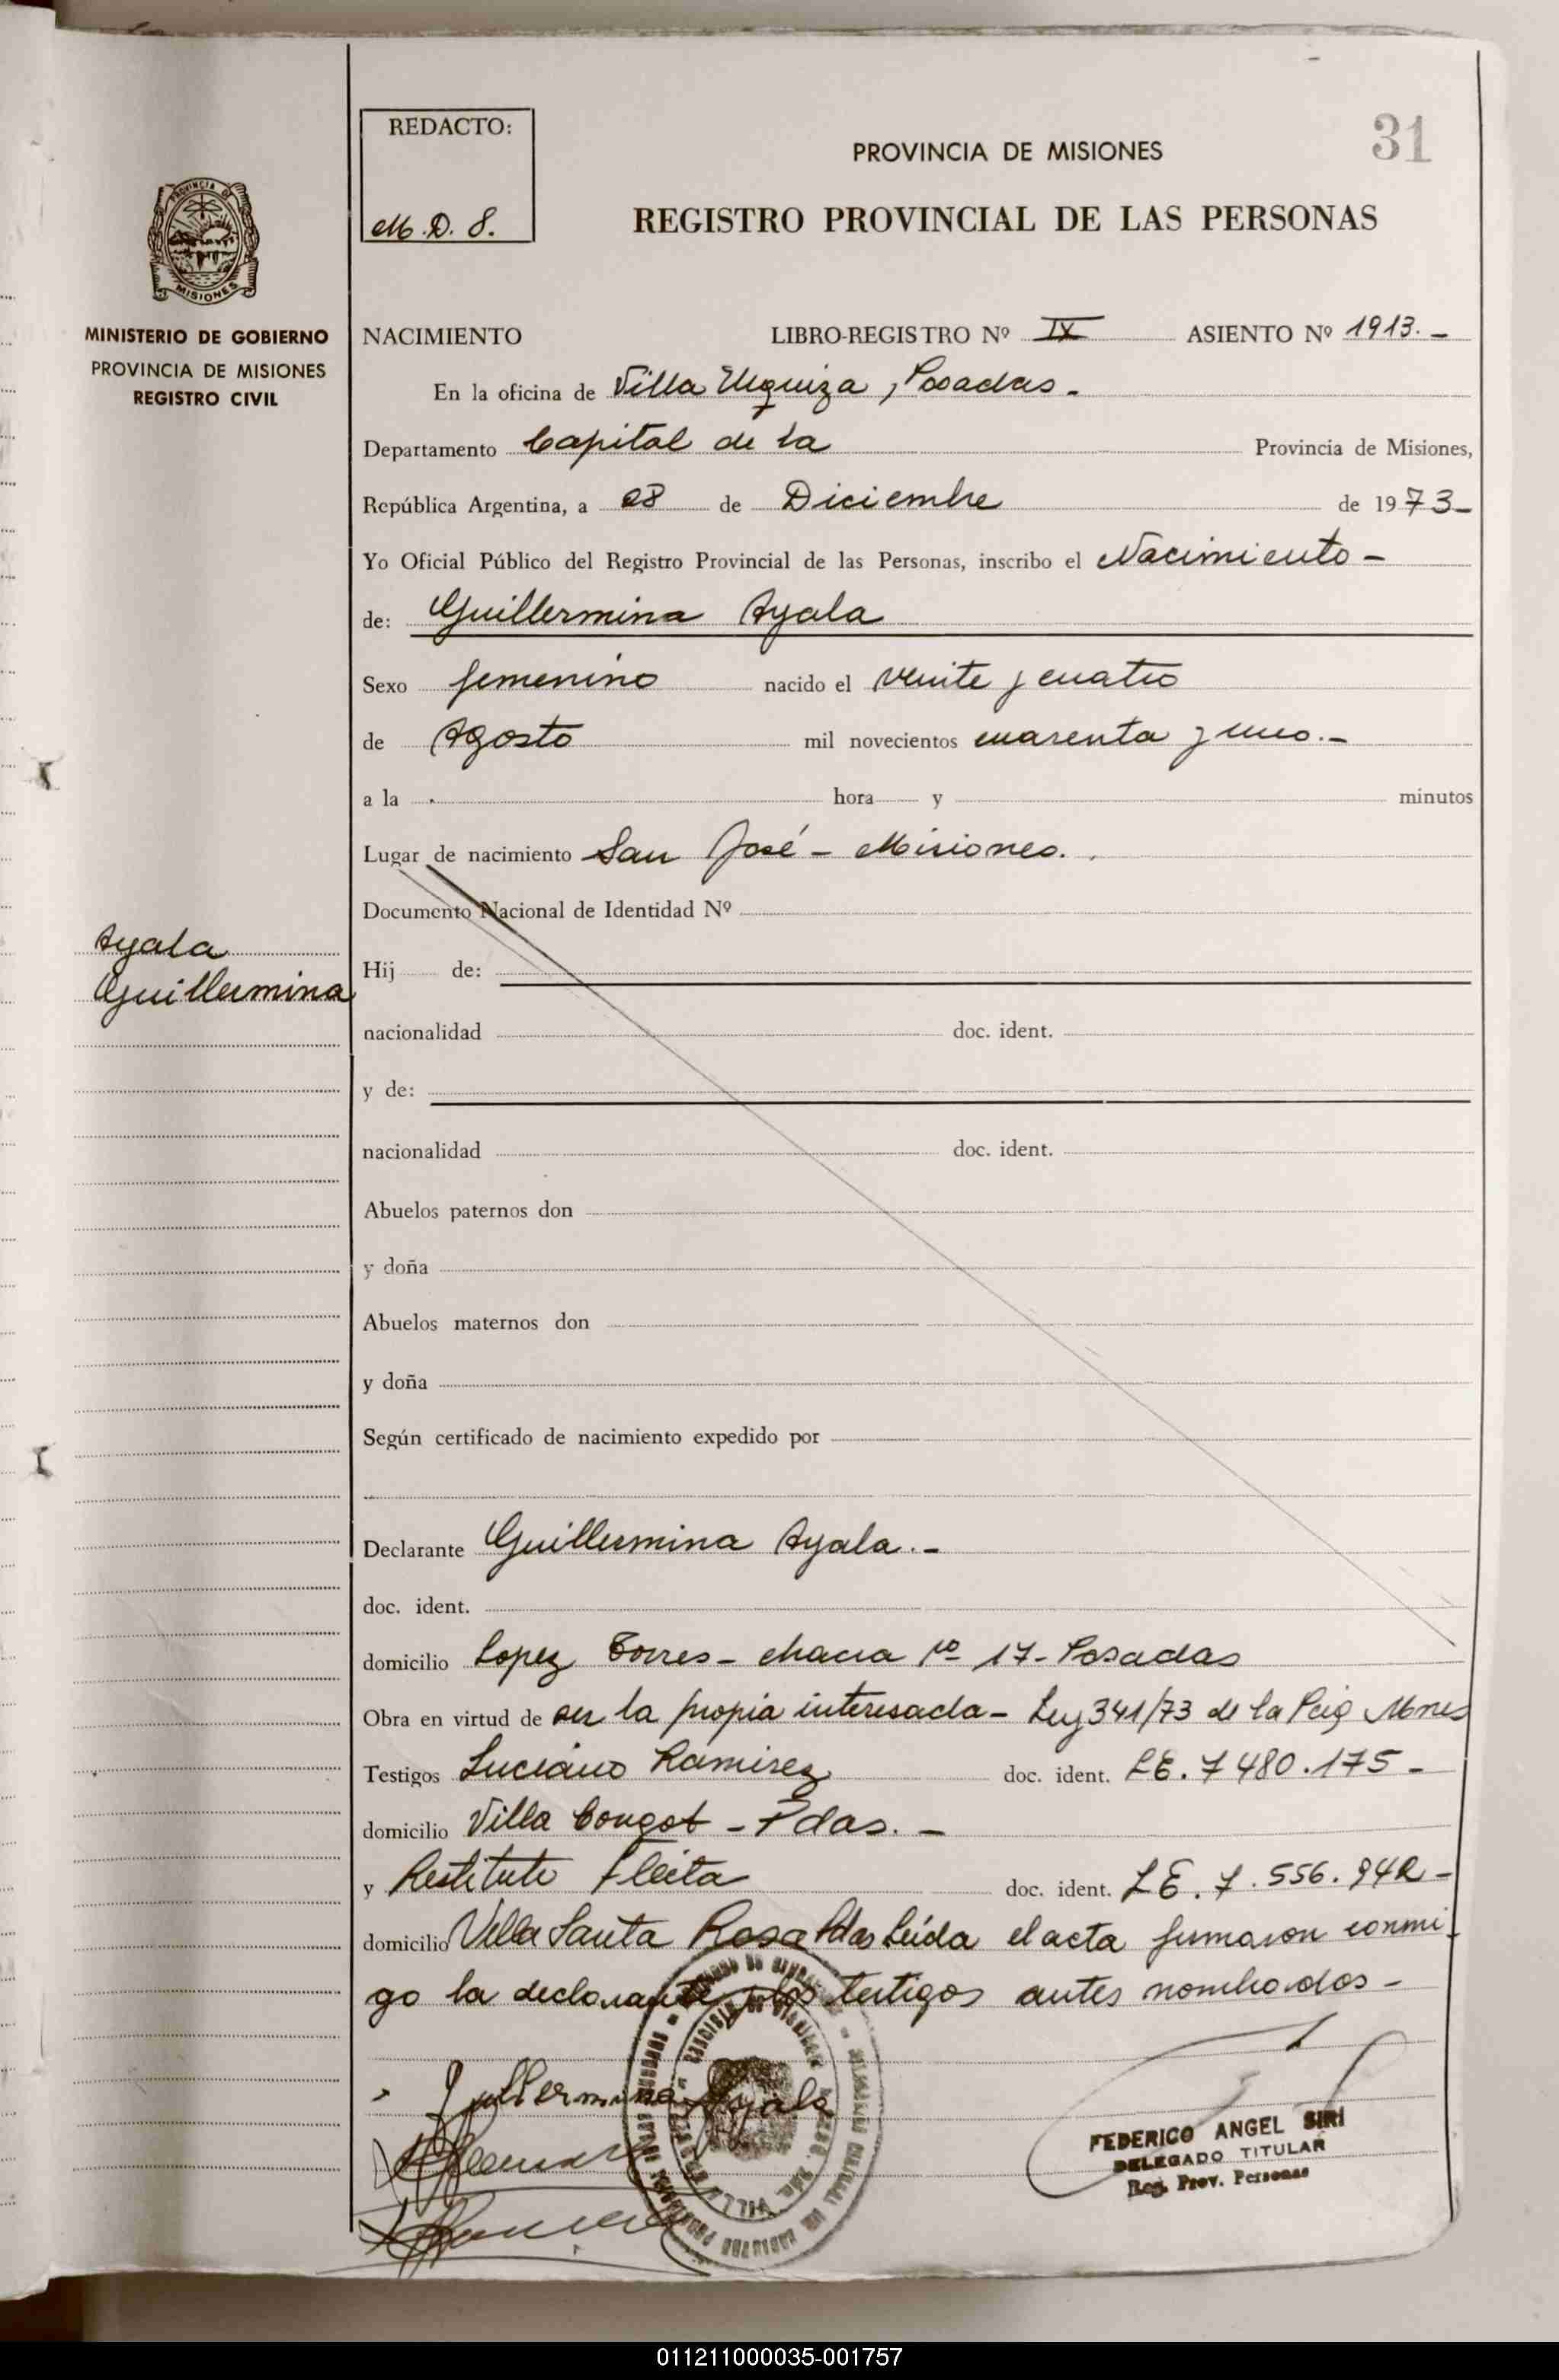 31
REDACTO:
M.D.S.
PROVINCIA DE MISIONES
REGISTRO PROVINCIAL DE LAS PERSONAS
PROVINCIA DE
MISIONES
MINISTERIO DE GOBIERNO
PROVINCIA DE MISIONES
REGISTRO CIVIL
NACIMIENTO LIBRO-REGISTRO Nº IX ASIENTO Nº 1913.-
En la oficina de Villa Urquiza, Posadas.-
Departamento Capital de la Provincia de Misiones,
República Argentina, a 28 de Diciembre de 1973-
Yo Oficial Público del Registro Provincial de las Personas, inscribo el Nacimiento-
de: Guillermina Ayala
Sexo femenino nacido el veinte y cuatro
de Agosto mil novecientos cuarenta y uno.-
a la hora y minutos
Lugar de nacimiento San José - Misiones.
Documento Nacional de Identidad Nº
Ayala
Guillermina
Hij de:
nacionalidad doc. ident.
y de:
nacionalidad doc. ident.
Abuelos paternos don
y doña
Abuelos maternos don
y doña
Según certificado de nacimiento expedido por
Declarante Guillermina Ayala.-
doc. ident.
domicilio Lopez Torres - chacra nº 17 - Posadas
Obra en virtud de ser la propia interesada - Ley 341/73 de la Mnes
Testigos Luciano Ramirez doc. ident. LE. 7480.175-
domicilio Villa - Pdas.-
y Restituto Fleita doc. ident. LE. 7.556.942-
domicilio Villa Santa Rosa Pdas Leída el acta firmaron conmi-
go la declarante y los testigos antes nombrados-
Guillermina Ayala
FEDERICO ANGEL SIRI
DELEGADO TITULAR
Reg. Prov. Personas
011211000035-001757